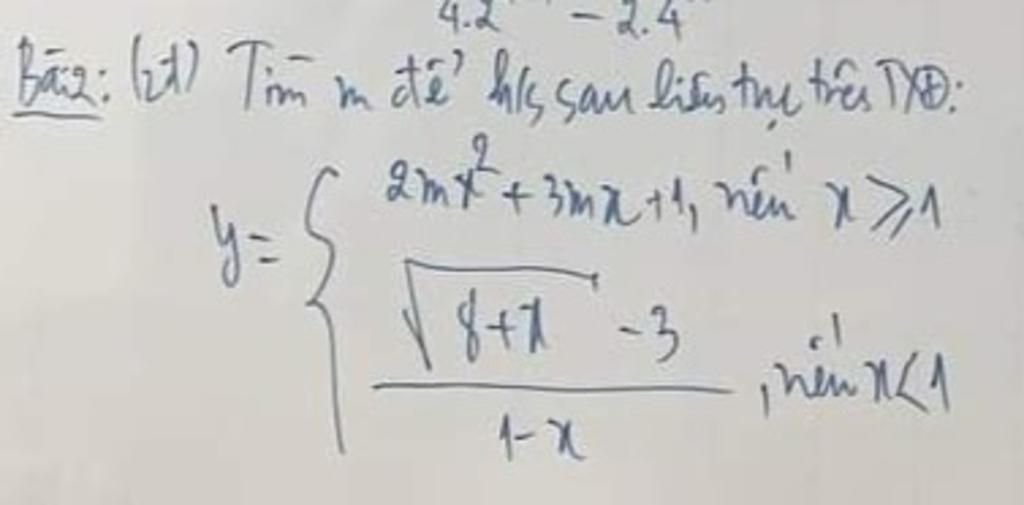 4.2 - 2.4
Bài 2: (2đ) Tìm m để h/s sau liên tục trên TXĐ:
y = { 2mx² + 3mx + 1, nếu x ⩾ 1
√(8+x) - 3 / 1 - x , nếu x < 1